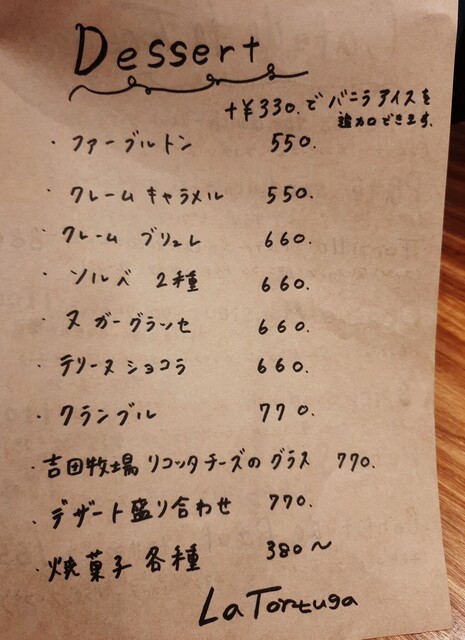 Dessert
+¥330.で バニラアイスを
追加できます.
・ファーブルトン 550.
・クレームキャラメル 550.
・クレーム ブリュレ 660.
・ソルベ 2種 660.
・ヌガーグラッセ 660.
・テリーヌショコラ 660.
・クランブル 770.
・吉田牧場リコッタチーズのグラス 770.
・デザート盛り合わせ 770.
・焼菓子各種 380〜
La Tortuga